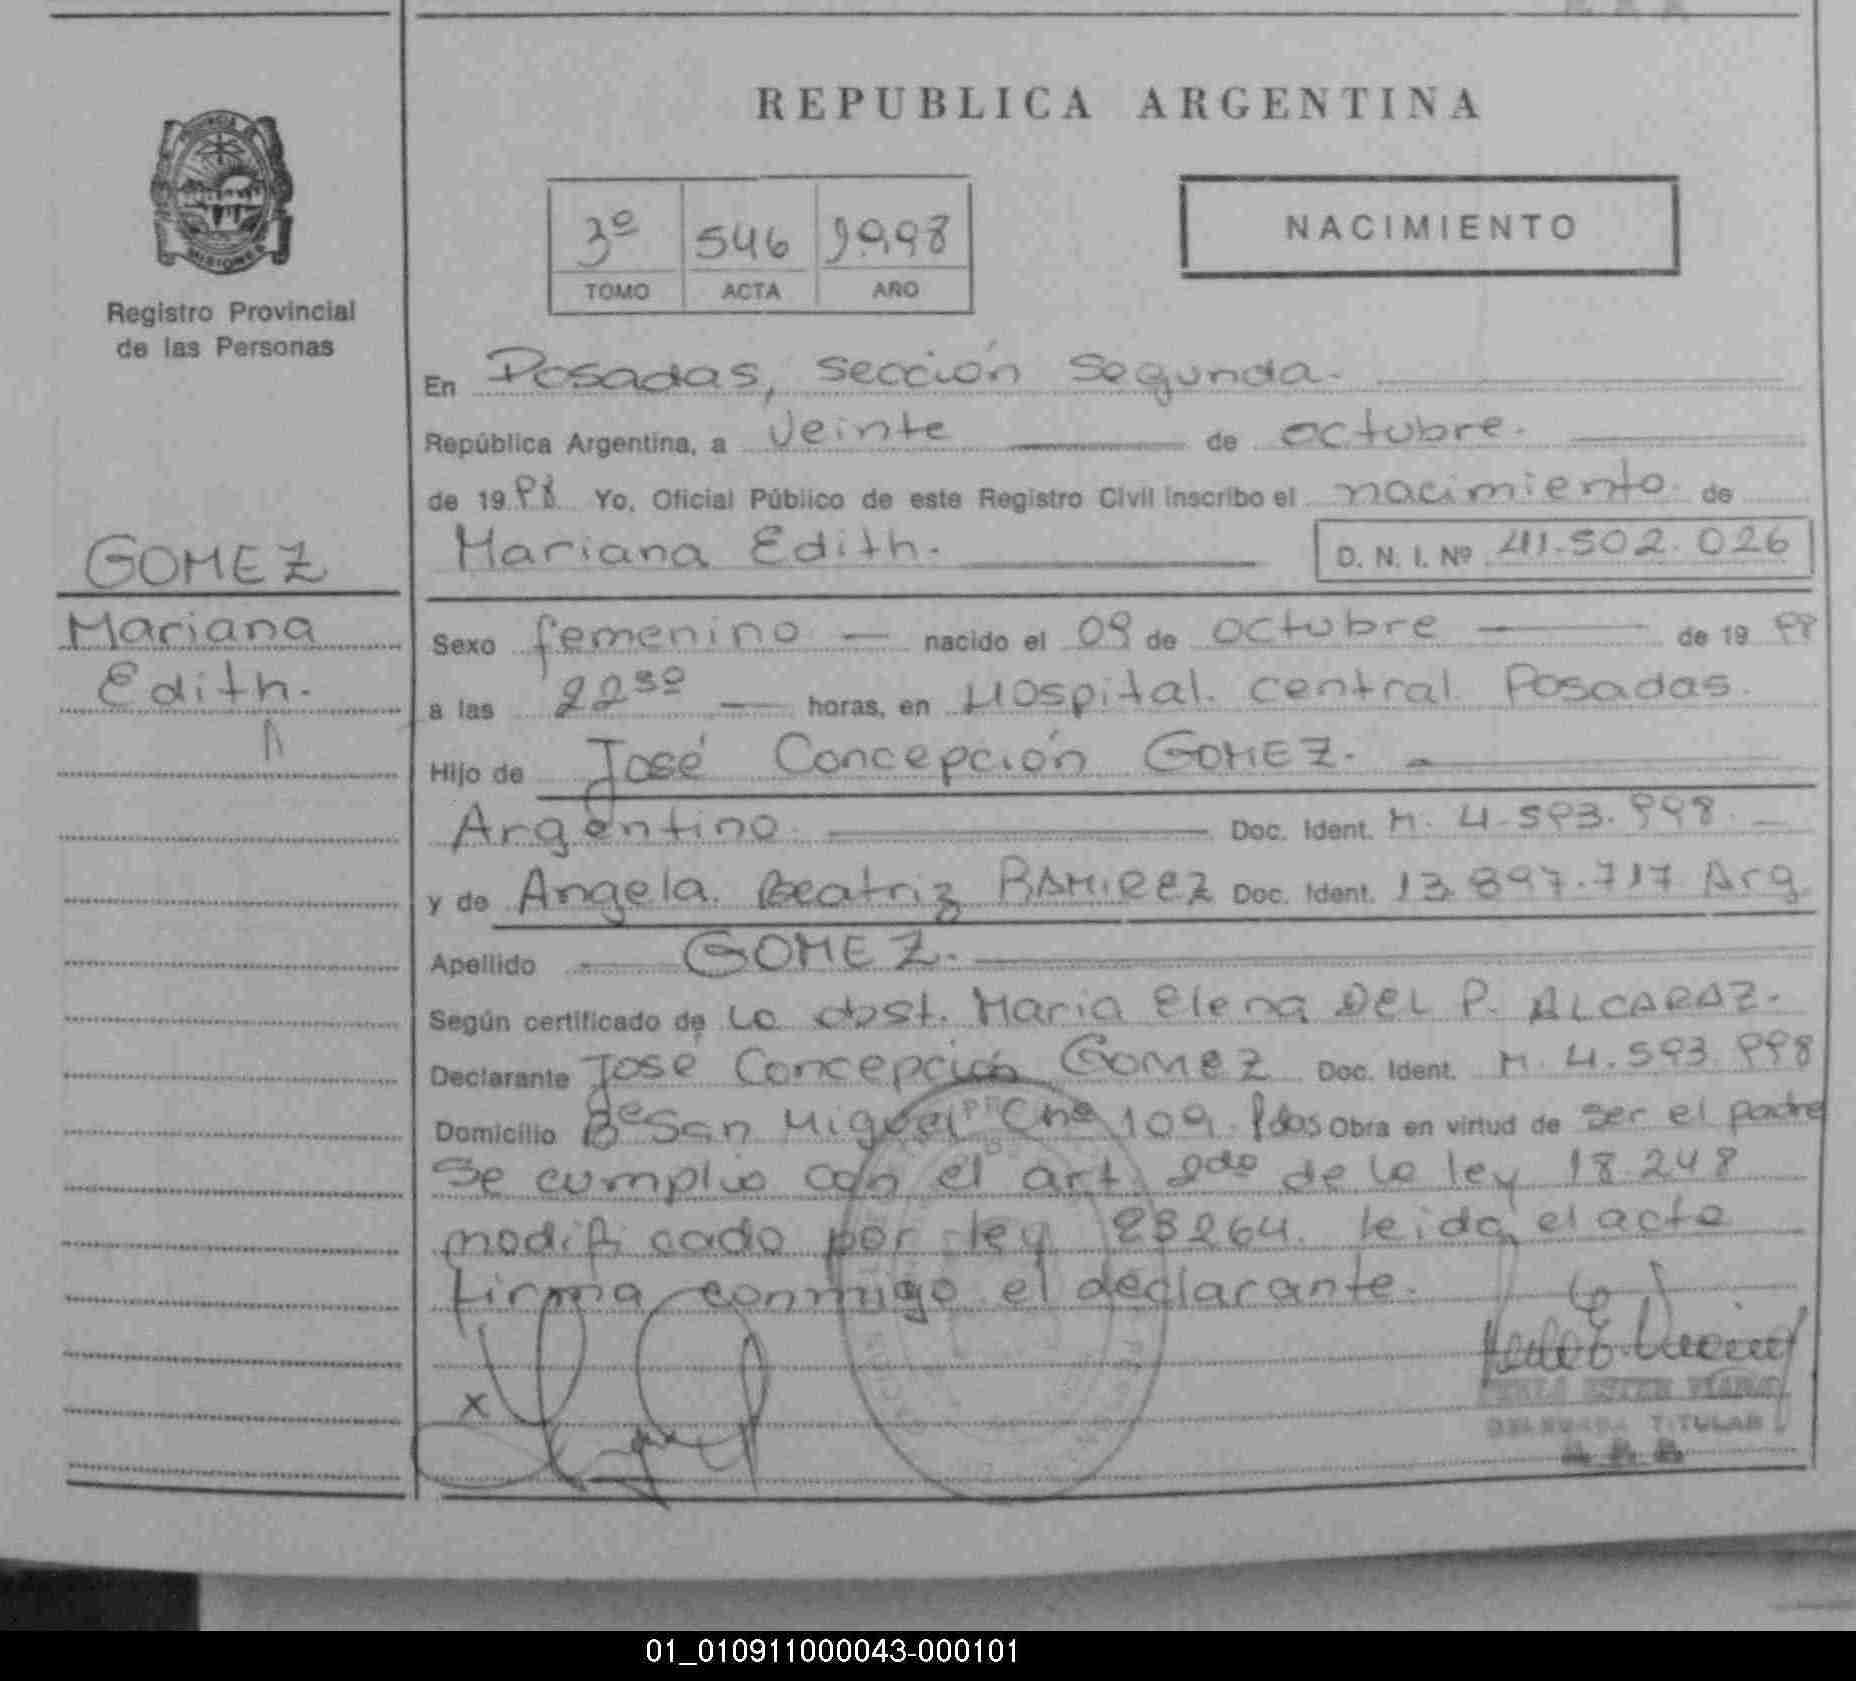 REPUBLICA ARGENTINA
3º 546 1998
TOMO ACTA AÑO
NACIMIENTO
PROVINCIA DE MISIONES
Registro Provincial
de las Personas
GOMEZ
Mariana
Edith.
En Posadas, sección Segunda.
República Argentina, a Veinte de octubre.
de 1998 Yo, Oficial Público de este Registro Civil inscribo el nacimiento de
Mariana Edith. D. N. I. Nº 41.502.026
Sexo femenino nacido el 09 de octubre de 1998
a las 22³⁰ horas, en Hospital central Posadas.
Hijo de José Concepción GOMEZ.
Argentino. Doc. Ident. M. 4.593.998
y de Angela Beatriz RAMIREZ Doc. Ident. 13.897.717 Arg
Apellido GOMEZ.
Según certificado de la obst. Maria Elena DEL P. ALCARAZ.
Declarante José Concepción GOMEZ Doc. Ident. M. 4.593.998
Domicilio Bº San Miguel Ch 109 Pdas Obra en virtud de ser el padre
se cumplio con el art. 2do de la ley 18.248
modificado por ley 23264. leida el acta
firma conmigo el declarante.
x
DELEGADA TITULAR
01_010911000043-000101